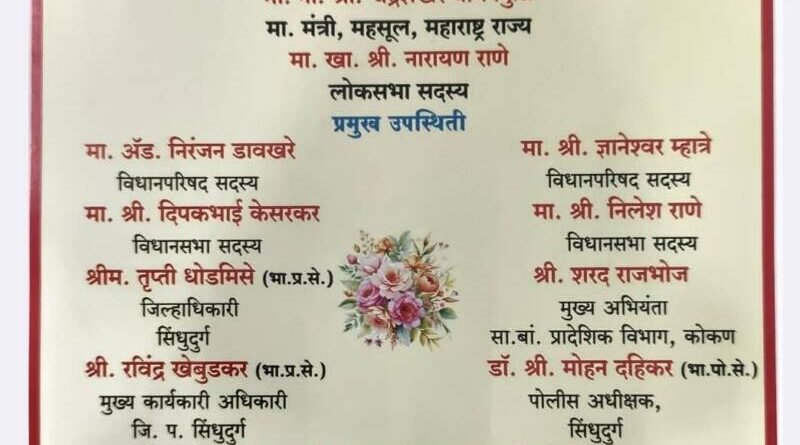 मा. मंत्री, महसूल, महाराष्ट्र राज्य
मा. खा. श्री. नारायण राणे
लोकसभा सदस्य
प्रमुख उपस्थिती
मा. ॲड. निरंजन डावखरे
विधानपरिषद सदस्य
मा. श्री. दिपकभाई केसरकर
विधानसभा सदस्य
श्रीम. तृप्ती धोडमिसे (भा.प्र.से.)
जिल्हाधिकारी
सिंधुदुर्ग
श्री. रविंद्र खेबुडकर (भा.प्र.से.)
मुख्य कार्यकारी अधिकारी
जि. प. सिंधुदुर्ग
मा. श्री. ज्ञानेश्वर म्हात्रे
विधानपरिषद सदस्य
मा. श्री. निलेश राणे
विधानसभा सदस्य
श्री. शरद राजभोज
मुख्य अभियंता
सा.बां. प्रादेशिक विभाग, कोकण
डॉ. श्री. मोहन दहिकर (भा.पो.से.)
पोलीस अधीक्षक,
सिंधुदुर्ग